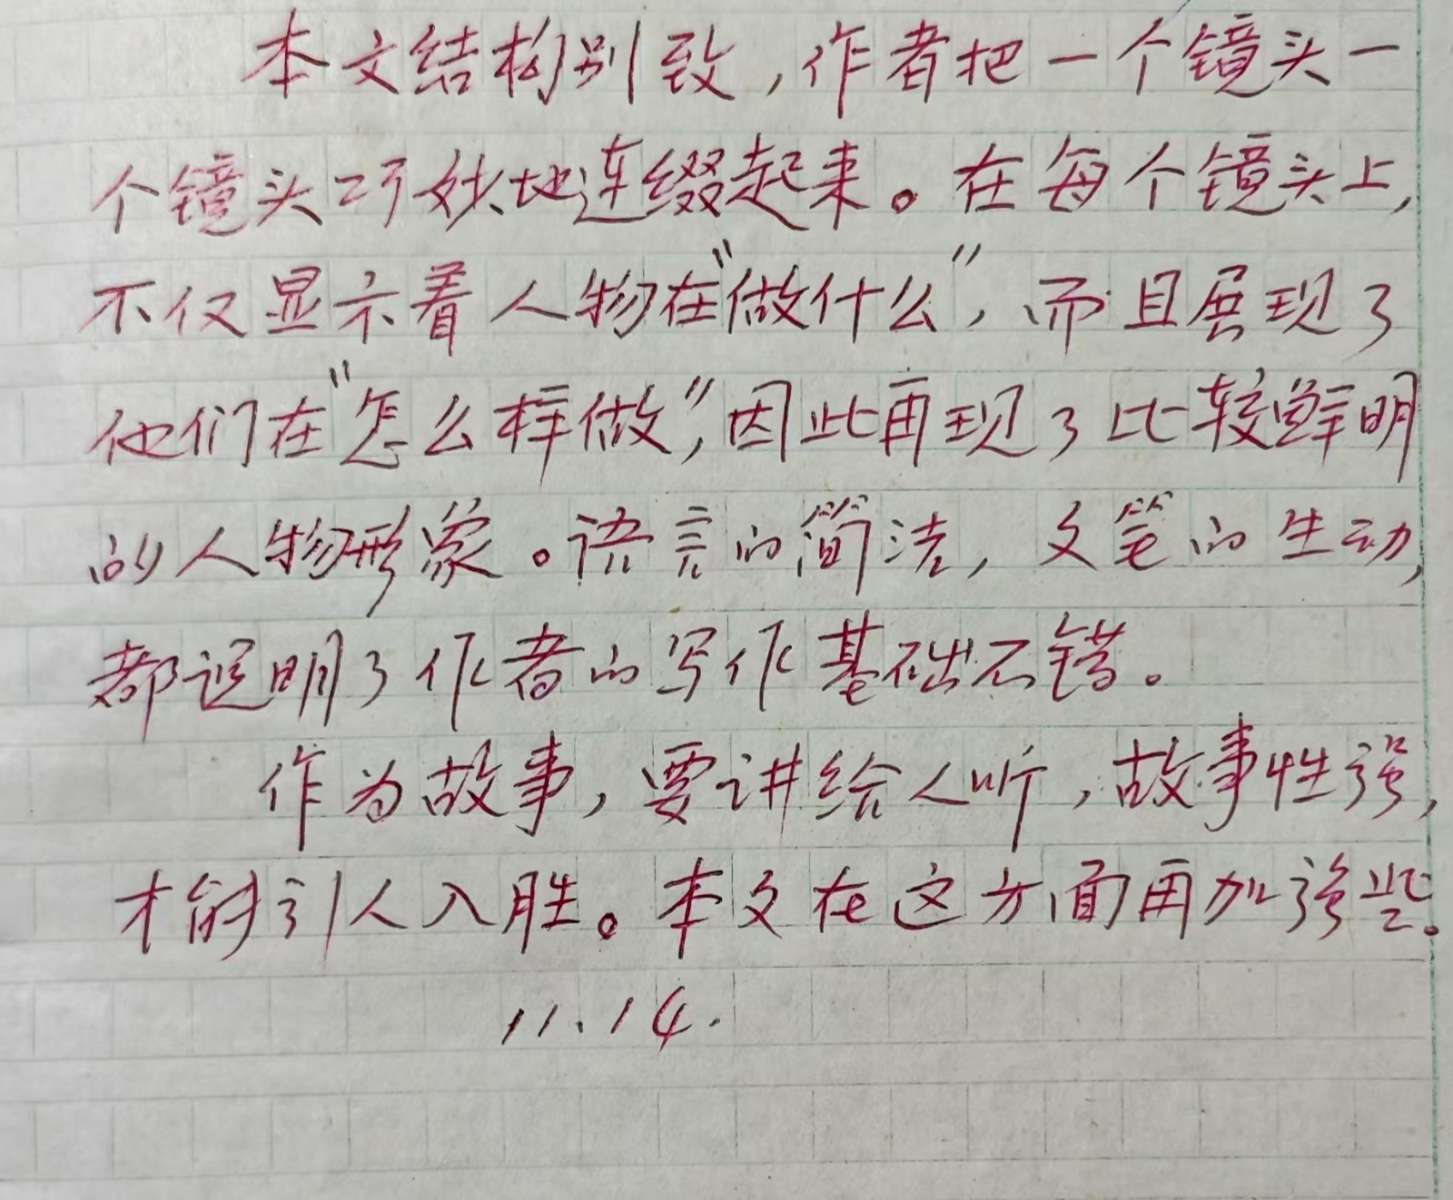 本文结构别致，作者把一个镜头一
个镜头巧妙地连缀起来。在每个镜头上，
不仅显示着人物在"做什么"，而且展现了
他们在"怎么样做"，因此再现了比较鲜明
的人物形象。语言的简洁，文笔的生动，
都说明了作者的写作基础不错。
作为故事，要讲给人听，故事性强，
才能引人入胜。本文在这方面再加强些。
11.14.